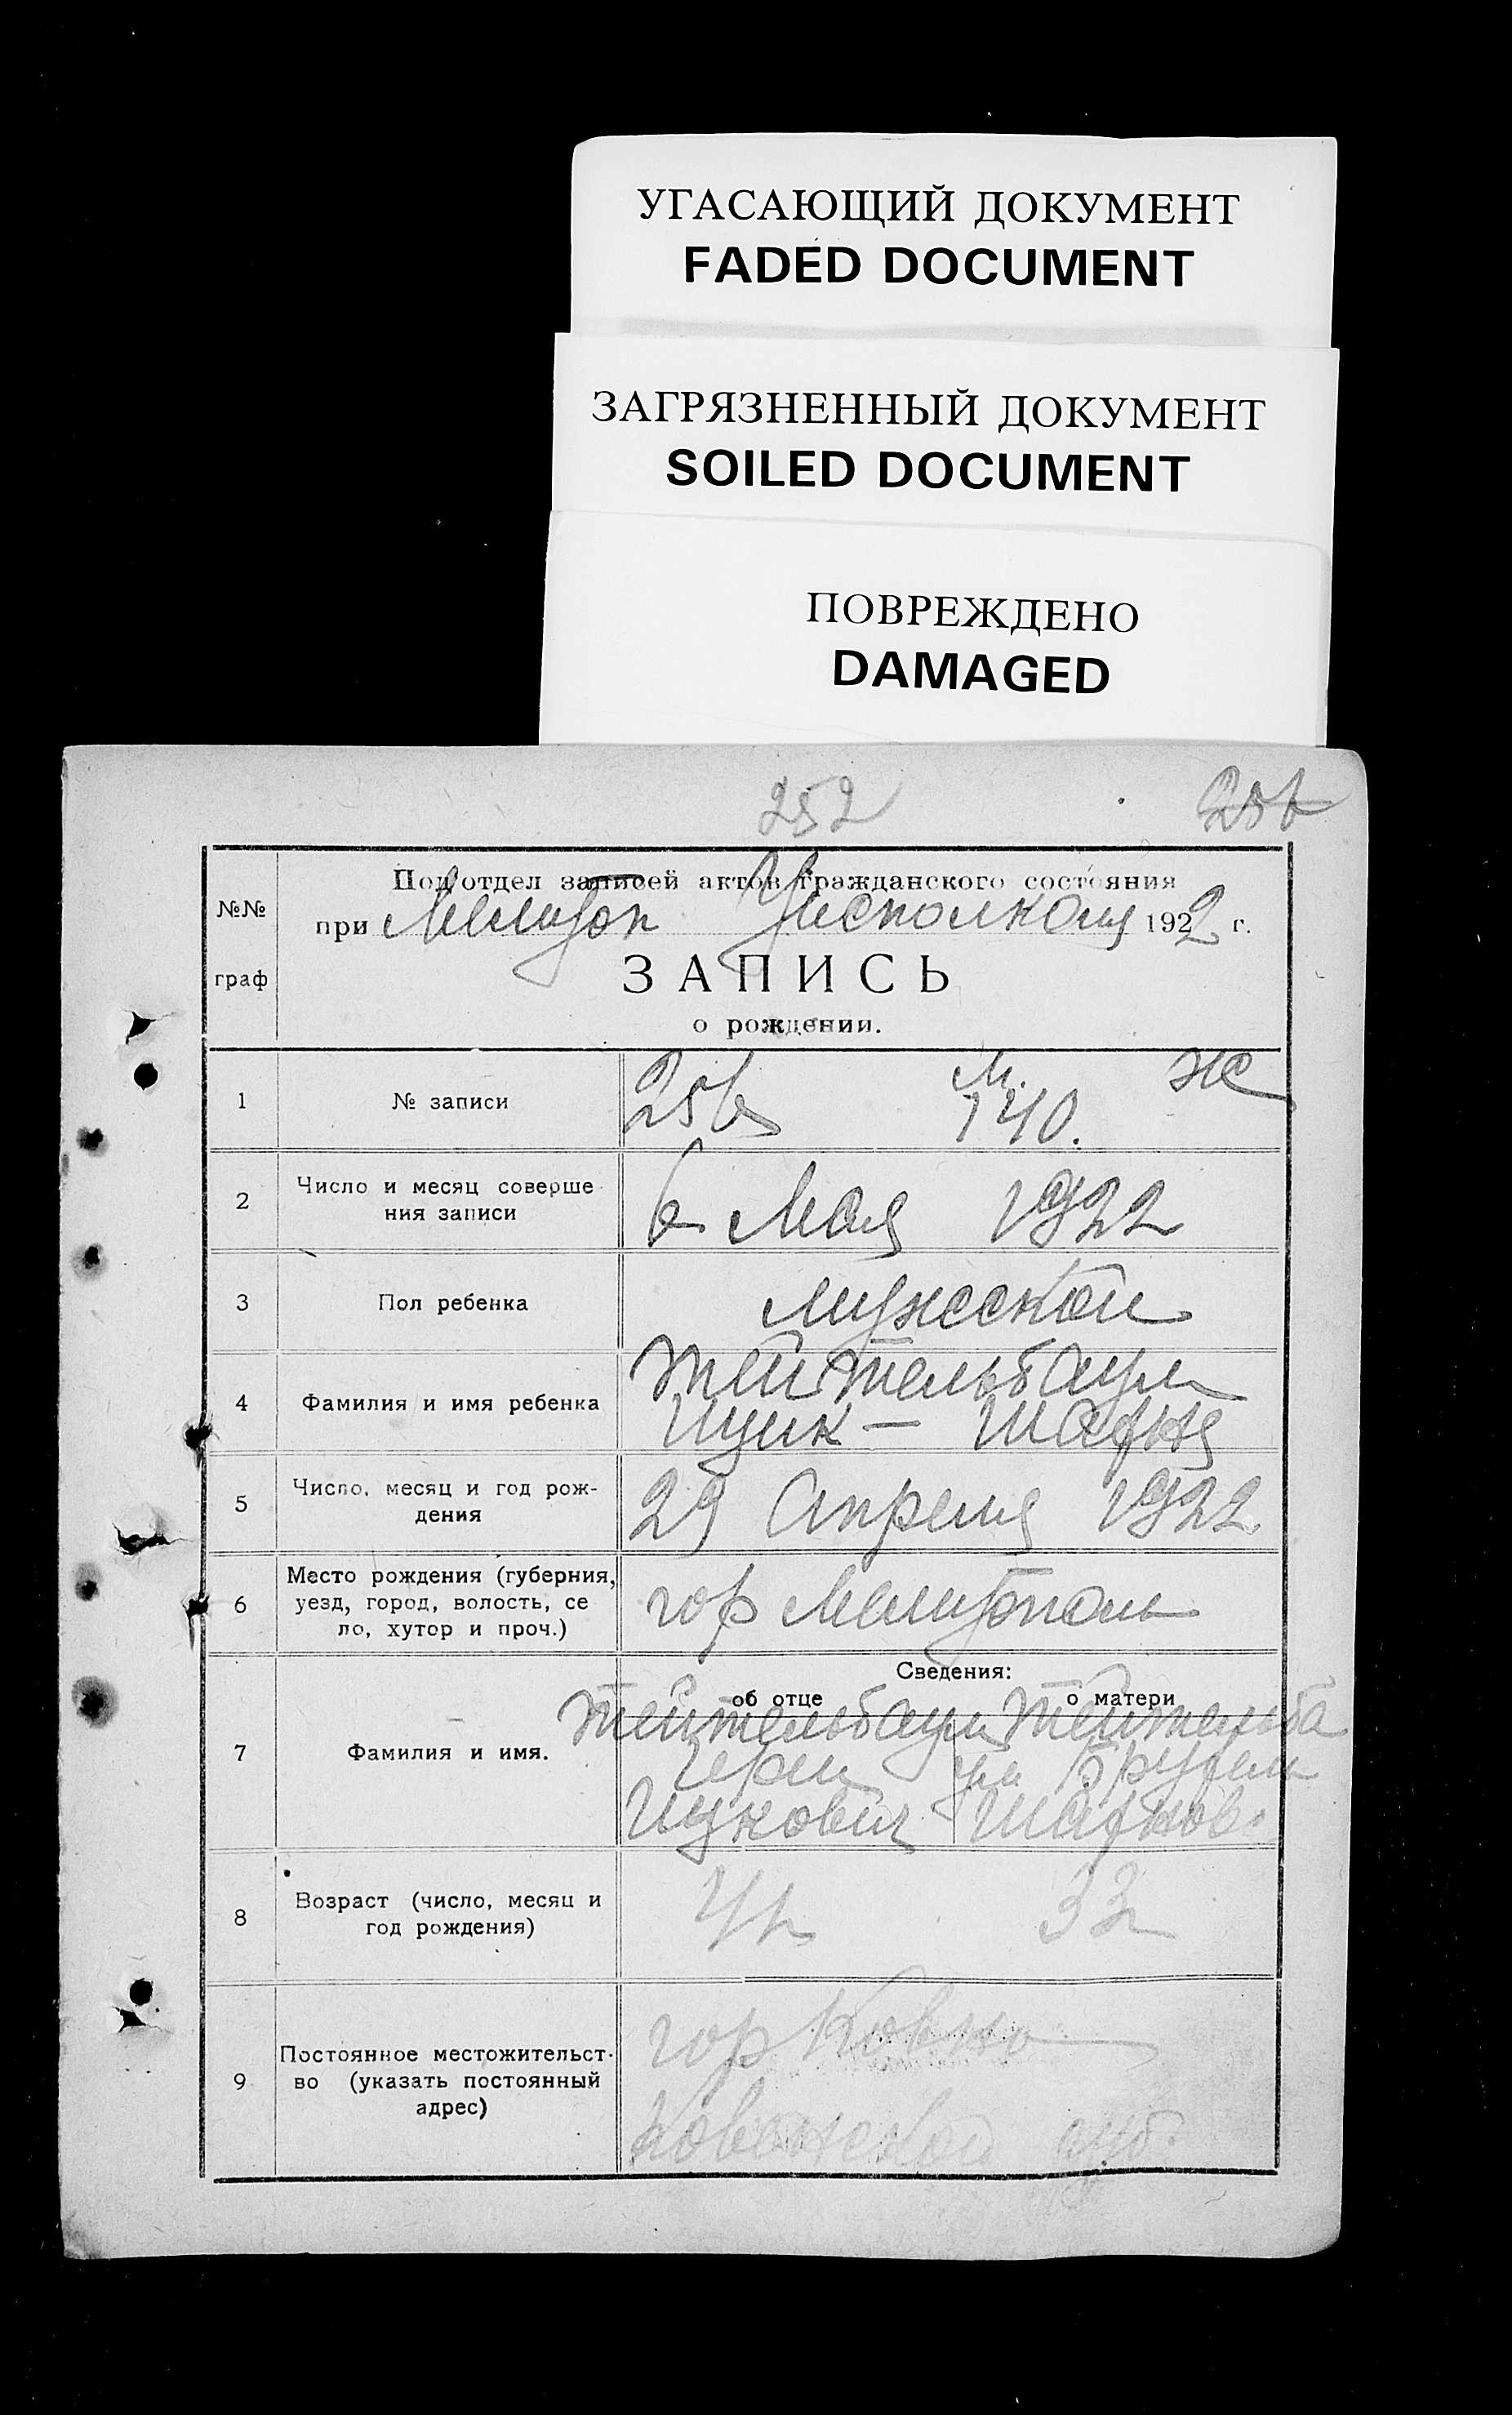 УГАСАЮЩИЙ ДОКУМЕНТ
FADED DOCUMENT
ЗАГРЯЗНЕННЫЙ ДОКУМЕНТ
SOILED DOCUMENT
ПОВРЕЖДЕНО
DAMAGED
252
256
№№ граф
Под'отдел записей актов гражданского состояния
при Мелитоп Исполкоме 1922 г.
ЗАПИСЬ
о рождении.
1 № записи 256 м. 140. ж
2 Число и месяц соверше
ния записи 6 Мая 1922
3 Пол ребенка мужской
4 Фамилия и имя ребенка Тейтельбаум
Ицик — Шафня
5 Число, месяц и год рож-
дения 29 Апреля 1922
6 Место рождения (губерния,
уезд, город, волость, се
ло, хутор и проч.) гор Мелитополь
Сведения:
об отце о матери
7 Фамилия и имя. Тейтельбаум Тейтельба
ум
Ицкович Шафнов.
8 Возраст (число, месяц и
год рождения) 41 33
9 Постоянное местожительст-
во (указать постоянный
адрес) гор Ковно
Ковенской губ.